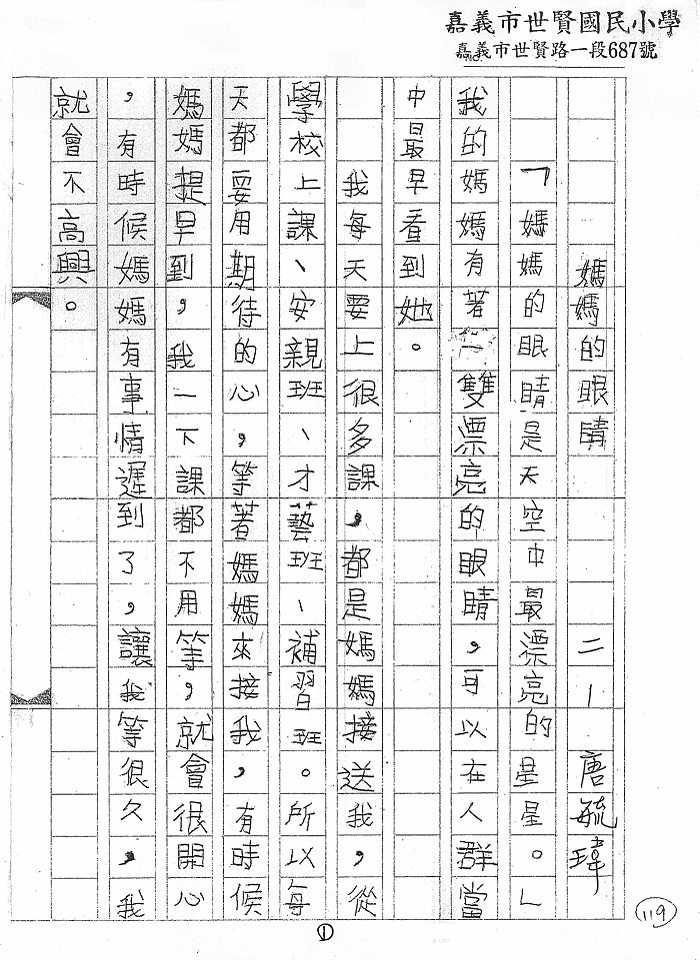 嘉義市世賢國民小學
嘉義市世賢路一段687號
媽媽的眼睛 二1 唐毓瑋
「媽媽的眼睛是天空中最漂亮的星星。」
我的媽媽有著一雙漂亮的眼睛,可以在人群當
中最早看到她。
我每天要上很多課,都是媽媽接送我,從
學校上課、安親班、才藝班、補習班。所以每
天都要用期待的心,等著媽媽來接我,有時候
媽媽提早到,我一下課都不用等,就會很開心
,有時候媽媽有事情遲到了,讓我等很久,我
就會不高興。
①
119